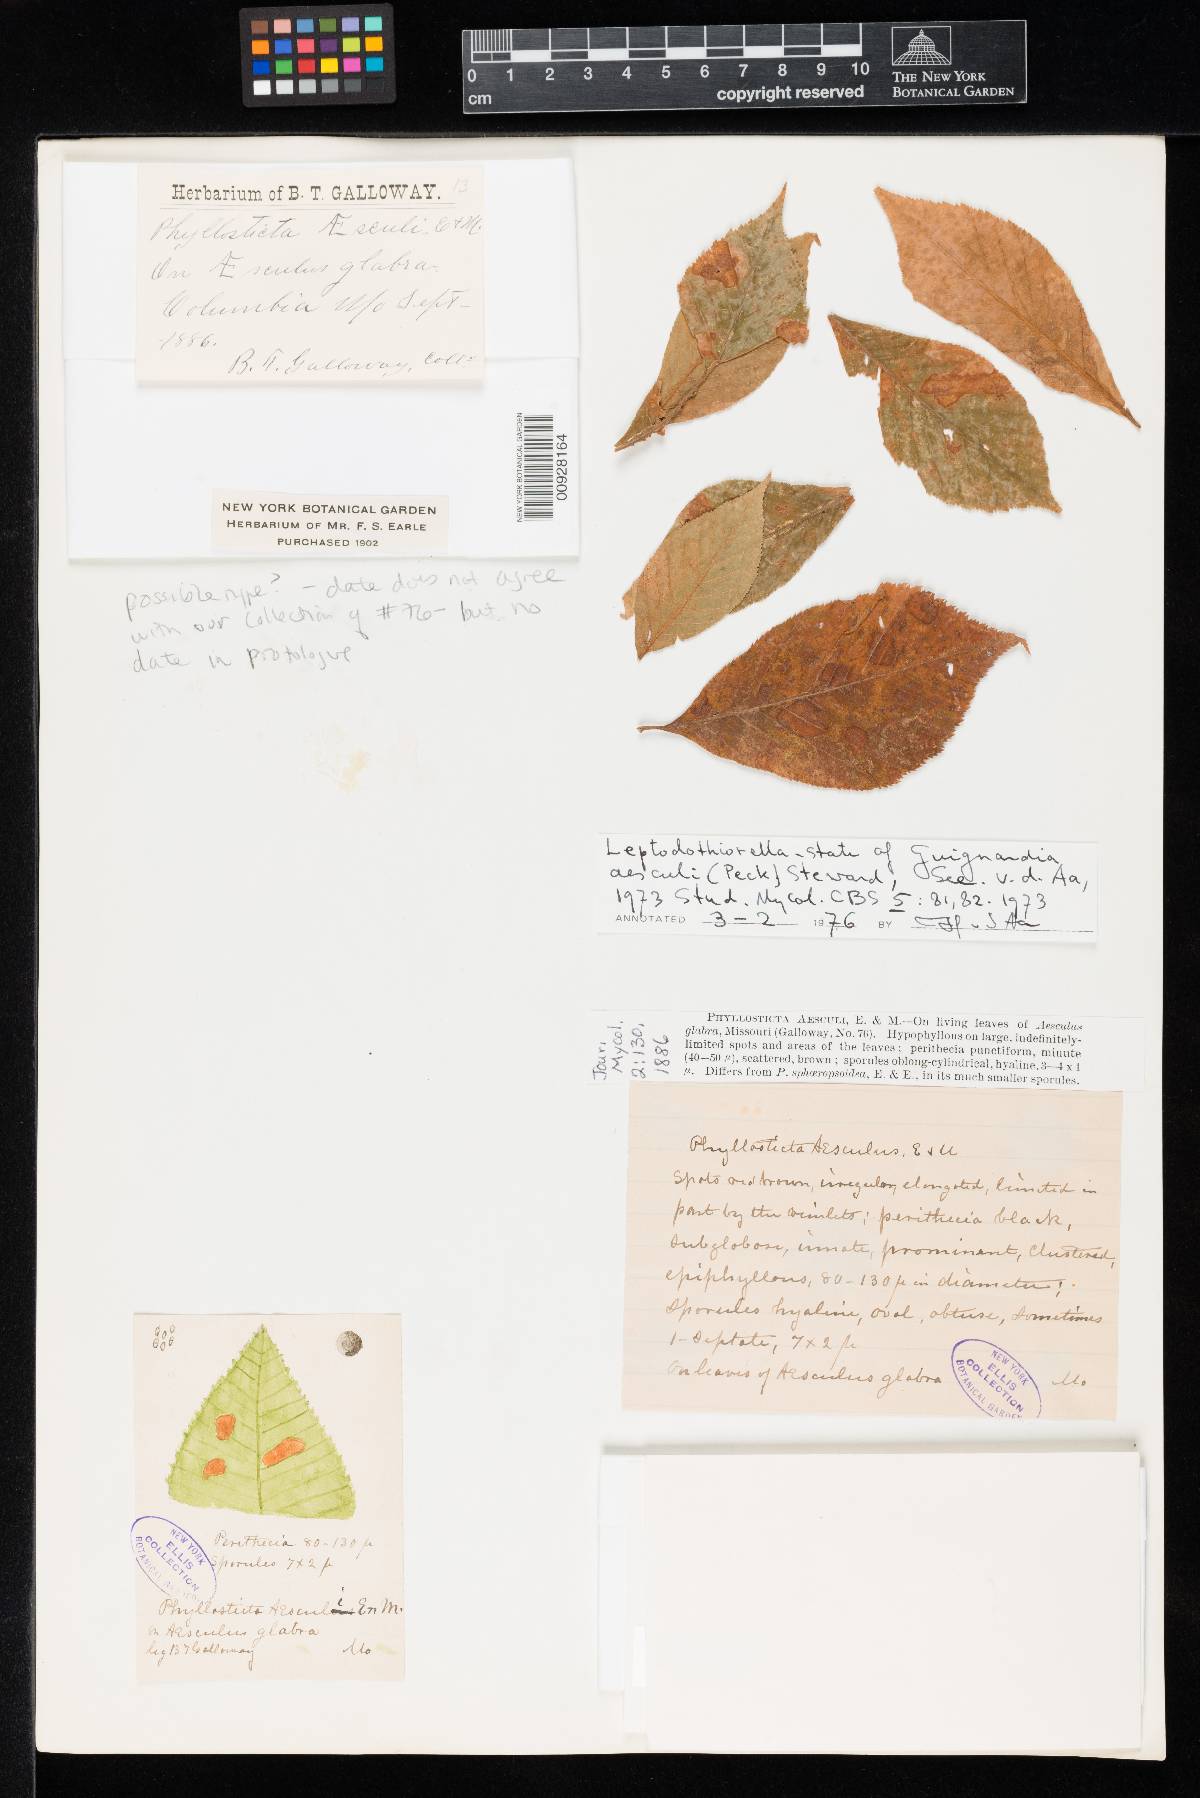 0 1 2 3 4 5 6 7 8 9 10
cm
copyright reserved
THE NEW YORK
BOTANICAL GARDEN
Herbarium of B. T. GALLOWAY. 13
Phyllosticta Æsculi. E & M.
On Æsculus glabra.
Columbia Mo Sept-
1886.
B. T. Galloway, Coll.
NEW YORK BOTANICAL GARDEN
00928164
NEW YORK BOTANICAL GARDEN
HERBARIUM OF MR. F. S. EARLE
PURCHASED 1902
possible type? - date does not agree
with our collection of #76- but no
date in protologue
Leptodothiorella-state of Guignardia
aesculi (Peck) Steward, See. v.d. Aa,
1973 Stud. Mycol. CBS 5: 81,82. 1973
ANNOTATED 3-2 1976 BY v d Aa
Jour.
Mycol.
2:130,
1886
PHYLLOSTICTA AESCULI, E. & M.—On living leaves of Aesculus
glabra, Missouri (Galloway, No. 76). Hypophyllous on large, indefinitely-
limited spots and areas of the leaves; perithecia punctiform, minute
(40–50 µ), scattered, brown; sporules oblong-cylindrical, hyaline, 3–4 x 1
µ. Differs from P. sphæropsoidea, E. & E., in its much smaller sporules.
Phyllosticta Aesculus, E & M
Spots red brown, irregular, elongated, limited in
part by the veinlets; perithecia black,
subglobose, innate, prominent, clustered,
epiphyllous, 80-130 µ in diameter;
Sporules hyaline, oval, obtuse, sometimes
1-septate, 7x2 µ
On leaves of Aesculus glabra Mo
NEW YORK
ELLIS
COLLECTION
BOTANICAL GARDEN
Perithecia 80-130 µ
Sporules 7x2 µ
NEW YORK
ELLIS
COLLECTION
BOTANICAL GARDEN
Phyllosticta Aesculi E & M.
on Aesculus glabra
leg B T Galloway Mo